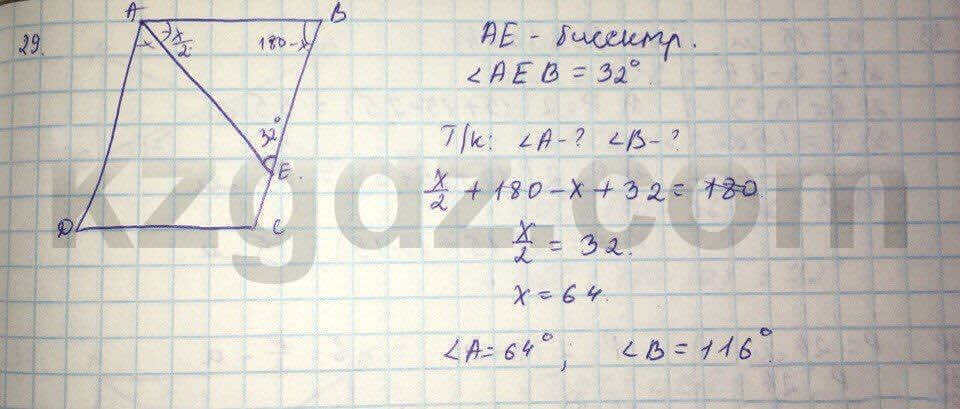 29.
A
B
x
x/2
180-x
32°
E.
D
C
AE - биссектр.
∠AEB = 32°.
Т/к: ∠A-? ∠B-?
x/2 + 180 - x + 32 = 180.
x/2 = 32.
x = 64.
∠A = 64°; ∠B = 116°.
kzgdz.com